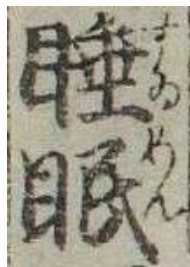 睡眠
すゐめん